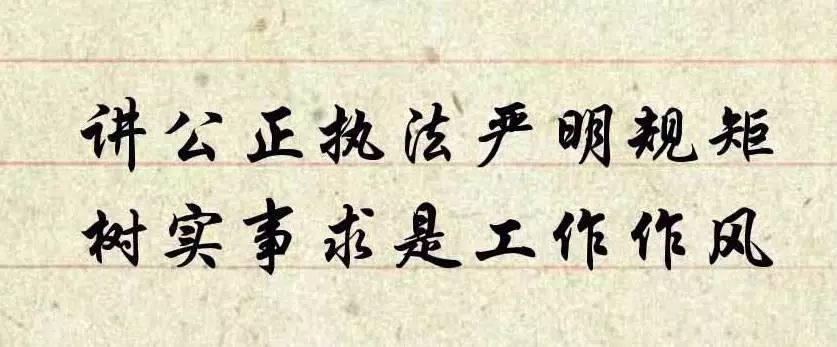 讲公正执法严明规矩
树实事求是工作作风